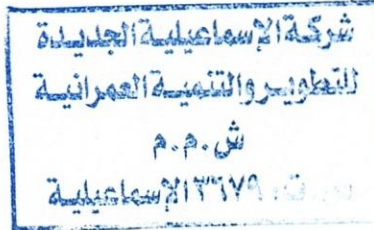 شركة الإسماعيلية الجديدة
للتطوير والتنمية العمرانية
ش.م.م
ت: ٣٦٧٩ الإسماعيلية